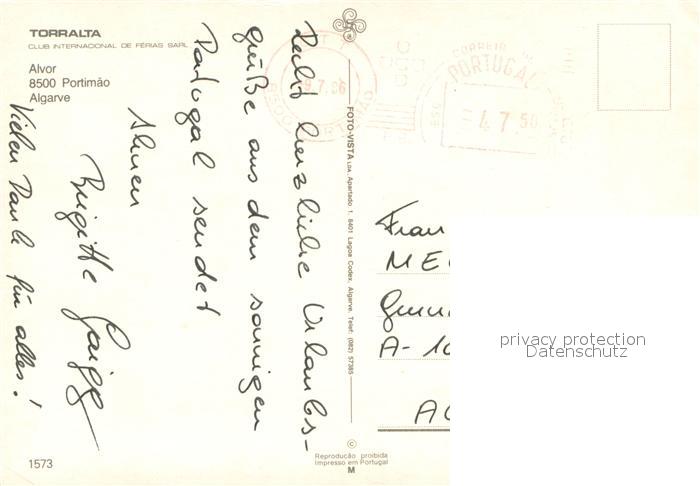 TORRALTA
CLUB INTERNACIONAL DE FÉRIAS SARL
Alvor
8500 Portimão
Algarve
Recht herzliche Urlaubs-
grüße aus dem sonnigen
Portugal sendet
Ihnen
Brigitte
Vielen Dank für alles!
FOTO-VISTA LDA. Apartado 1. 8401 Lagoa Codex, Algarve. Telef: (082) 57385
CORREIO
PORTUGAL
4 7.50
9.7.86
8500
Frau
A-10
privacy protection
Datenschutz
©
Reprodução proibida
Impresso em Portugal
M
1573